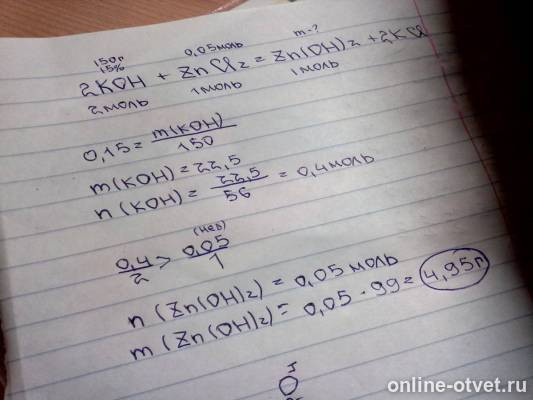 150г 0,05моль m-?
15%
2KOH + ZnCl2 = Zn(OH)2 + 2KCl
2моль 1моль 1моль
0,15 = m(KOH)/150
m(KOH) = 22,5
n(KOH) = 22,5/56 = 0,4моль
(нед)
0,4/2 > 0,05/1
n(Zn(OH)2) = 0,05моль
m(Zn(OH)2) = 0,05 · 99 = 4,95г
online-otvet.ru